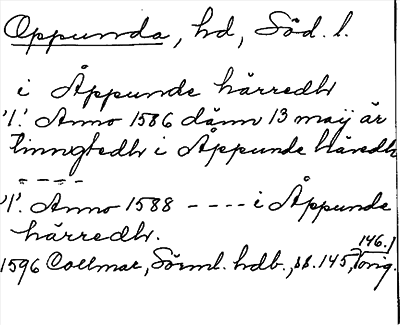 Oppunda, hd, Söd. l.
i Åppunde härredh
'1.' Anno 1586 dänn 13 maÿ är
tinngtedh i Åppunde häredh
----
'1.' Anno 1588 ---- i Åppunde
härredh.
146.)
1596 Collmar, Sörml. hdb., ss. 145, orig.